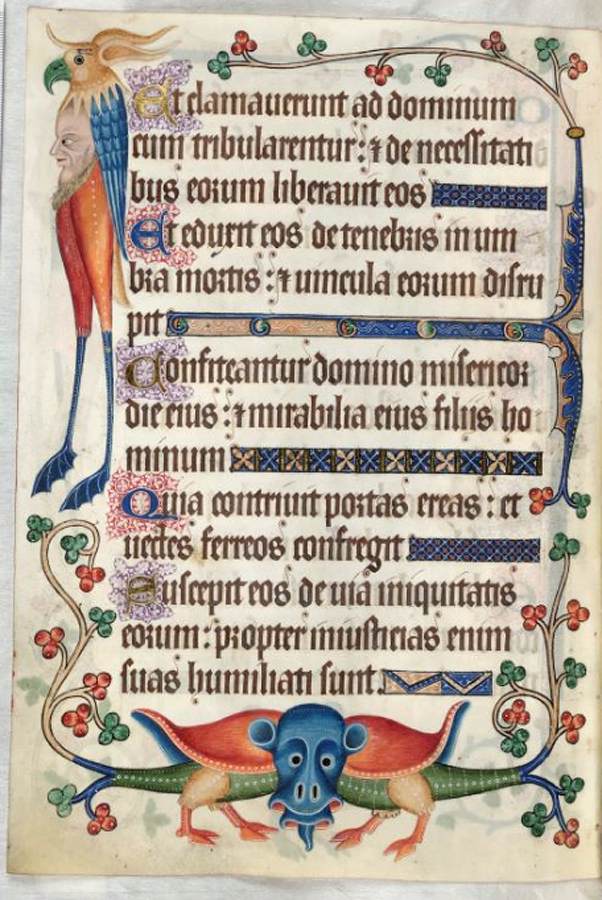 Et clamauerunt ad dominum
cum tribularentur : ⁊ de necessitati
bus eorum liberauit eos
Et eduxit eos de tenebris in um
bra mortis : ⁊ uincula eorum disru
pit
Confiteantur domino misericor
die eius : ⁊ mirabilia eius filiis ho
minum
Quia contriuit portas ereas : et
uectes ferreos confregit
Suscepit eos de uia iniquitatis
eorum : propter iniusticias enim
suas humiliati sunt.